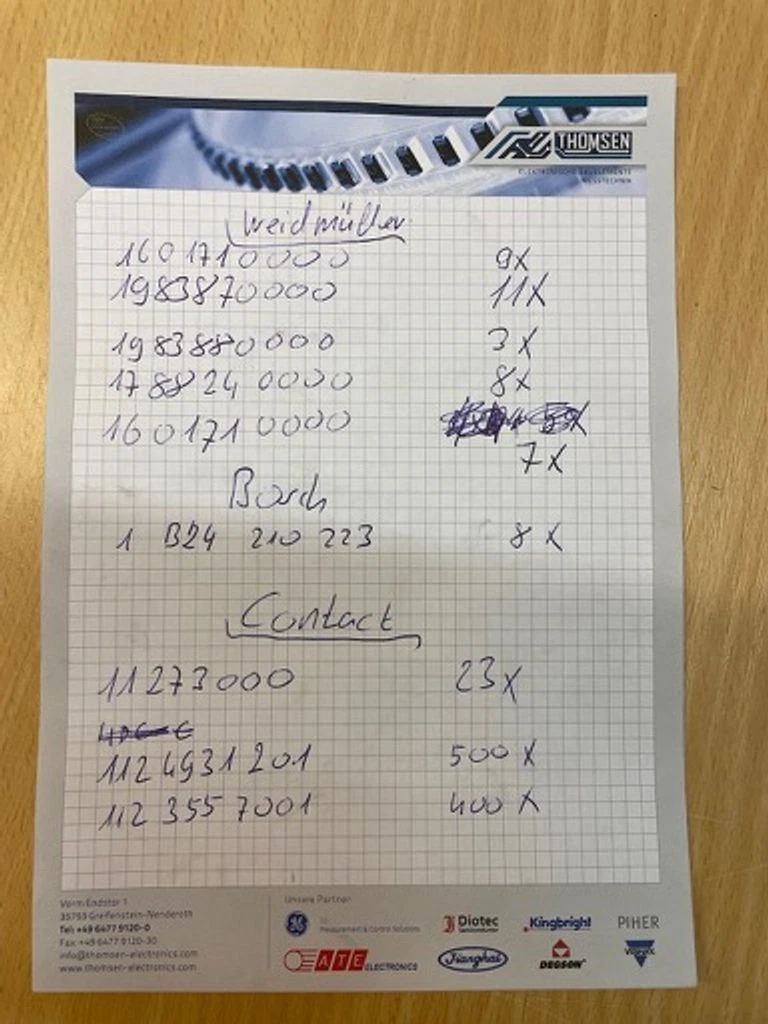 THOMSEN
ELEKTRONISCHE BAUELEMENTE
MESSTECHNIK
Weidmüller
1601710000 9x
1983870000 11x
1983880000 3x
1788240000 8x
1601710000
7x
Bosch
1 B24 210 223 8x
Contact
11273000 23x
1124931201 500x
1123557001 400x
Vorm Endstor 1
35753 Greifenstein-Nenderoth
Tel: +49 6477 9120-0
Fax: +49 6477 9120-30
info@thomsen-electronics.com
www.thomsen-electronics.com
Unsere Partner
GE
Measurement & Control Solutions
Diotec
Semiconductor
Kingbright
PIHER
ATE ELECTRONICS
Jianghai
DEGSON